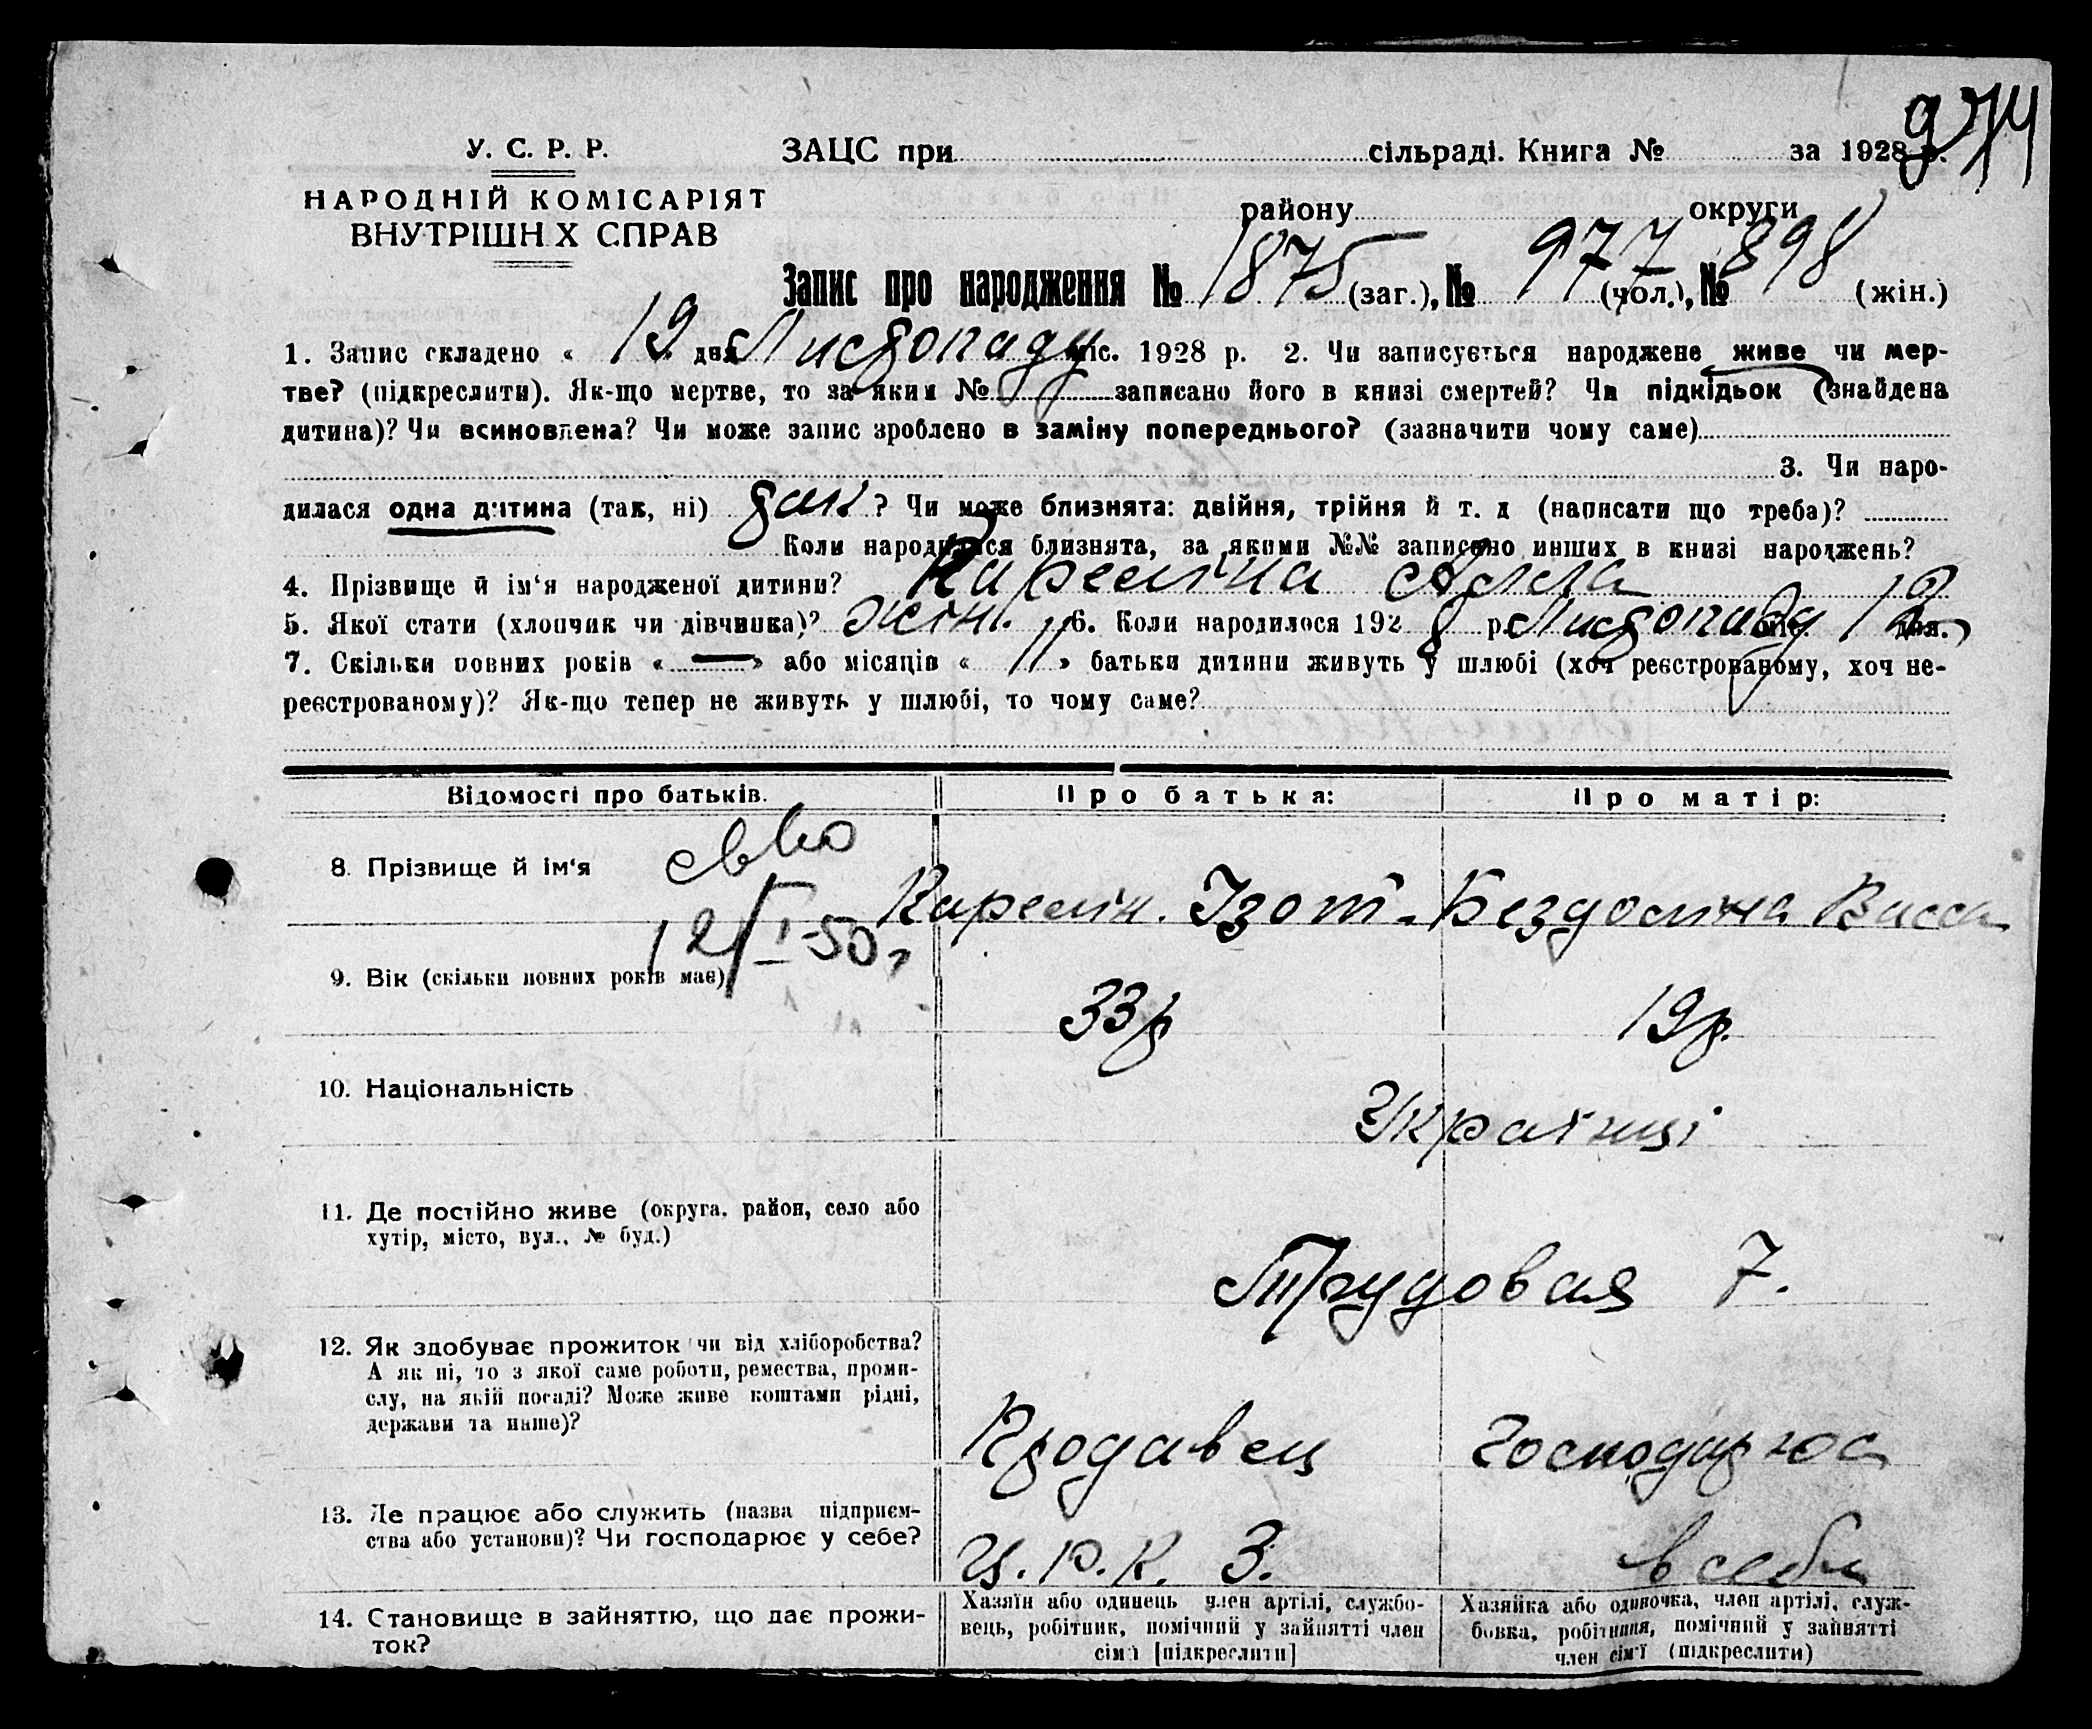 974
У. С. Р. Р.
ЗАЦС при сільраді. Книга № за 1928 р.
НАРОДНІЙ КОМІСАРІЯТ
ВНУТРІШН Х СПРАВ
району округи
Запис про народження № 1875 (заг.), № 977 (чол.), № 898 (жін.)
1. Запис складено « 19 » дня Листопаду міс. 1928 р. 2. Чи записується народжене живе чи мер-
тве? (підкреслити). Як-що мертве, то за яким № записано його в книзі смертей? Чи підкідьок (знайдена
дитина)? Чи всиновлена? Чи може запис зроблено в заміну попереднього? (зазначити чому саме)
3. Чи наро-
дилася одна дитина (так, ні) так. ? Чи може близнята: двійня, трійня й т. д (написати що треба)?
Коли народилися близнята, за якими №№ записано инших в книзі народжень?
4. Прізвище й ім‘я народженої дитини? Кареліна Алла
5. Якої стати (хлопчик чи дівчинка)? жін. 6. Коли народилося 1928 р. Листопаду міс. 12 дня.
7. Скільки повних років « — » або місяців « 11 » батьки дитини живуть у шлюбі (хоч реєстрованому, хоч не-
реєстрованому)? Як-що тепер не живуть у шлюбі, то чому саме?
Відомості про батьків.
Про батька:
Про матір:
8. Прізвище й ім‘я
св во
Карелін. Ізот.
Бездоліна Васса
12/I-50 г
9. Вік (скільки повних років має)
33 р
19 р.
10. Національність
Українці
11. Де постійно живе (округа, район, село або
хутір, місто, вул., № буд.)
Трудовая 7.
12. Як здобуває прожиток чи від хліборобства?
А як ні, то з якої саме роботи, ремества, проми-
слу, на якій посаді? Може живе коштами рідні,
держави та инше)?
Продавец
Господарюе
13. Де працює або служить (назва підприєм-
ства або установи)? Чи господарює у себе?
Ц. Р. К. 3.
в себе
14. Становище в зайняттю, що дає прожи-
ток?
Хазяїн або одинець член артілі, службо-
вець, робітник, помічний у зайнятті член
сім'ї [підкреслити]
Хазяйка або одиночка, член артілі, служ-
бовка, робітниця, помічний у зайнятті
член сім'ї (підкреслити)